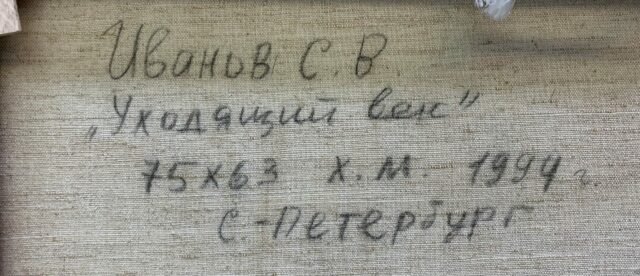 Иванов С.В.
„Уходящий век"
75х63 х.м. 1994 г.
С.-Петербург